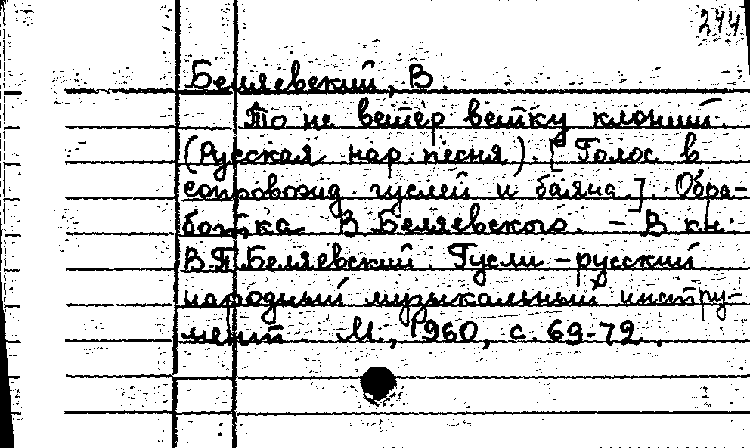 244
Беляевский, В.
То не ветер ветку клонит.
(Русская нар. песня). [Голос в
сопровожд. гуслей и баяна]. Обра-
ботка В. Беляевского. - В кн.:
В.П. Беляевский. Гусли - русский
народный музыкальный инстру-
мент М., 1960, с. 69-72.